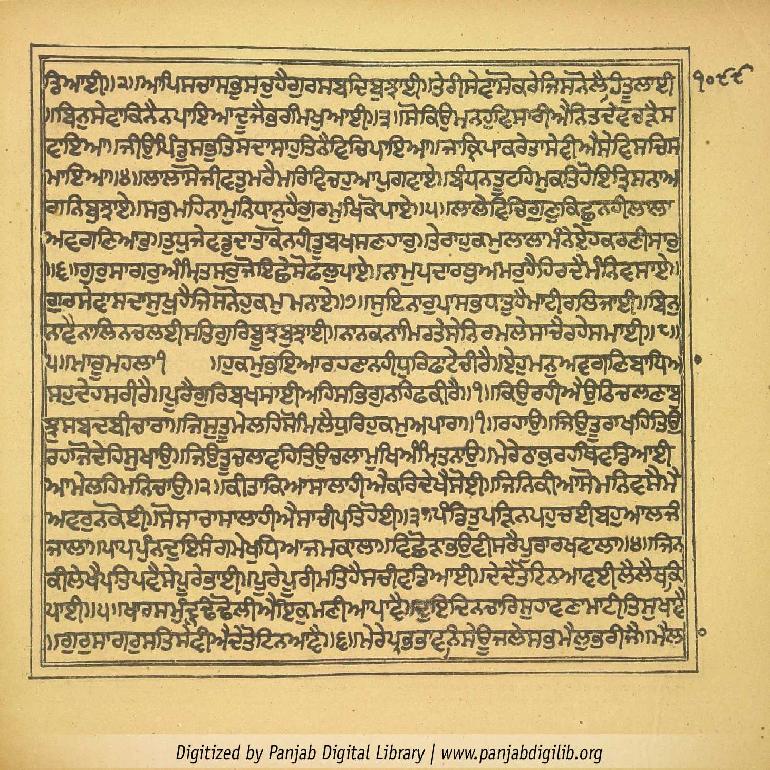 ਡਿਆਈ॥੨॥ਆਪਿਸਚਾਸਭੁਸਚੁਹੈਗੁਰਸਬਦਿਬੁਝਾਈ॥ਤੇਰੀਸੇਵਾਸੋਕਰੇਜਿਸਨੋਲੈਹਿਤੂਲਾਈ
॥ਬਿਨੁਸੇਵਾਕਿਨੈਨਪਾਇਆਦੂਜੈਭਰਮਿਖੁਆਈ॥੩॥ਸੋਕਿਉਮਨਹੁਵਿਸਾਰੀਐਨਿਤਦੇਵੈਚੜੈਸ
ਵਾਇਆ॥ਜੀਉਪਿੰਡੁਸਭੁਤਿਸਦਾਸਾਹੁਤਿਨੈਵਿਚਿਪਾਇਆ॥ਜਾਕ੍ਰਿਪਾਕਰੇਤਾਸੇਵੀਐਸੇਵਿਸਚਿਸ
ਮਾਇਆ॥੪॥ਲਾਲਾਸੋਜੀਵਤੁਮਰੈਮਰਿਵਿਚਹੁਆਪੁਗਵਾਏ॥ਬੰਧਨਤੂਟਹਿਮੁਕਤਿਹੋਇਤ੍ਰਿਸਨਾਅ
ਗਨਿਬੁਝਾਏ॥ਸਭਮਹਿਨਾਮੁਨਿਧਾਨੁਹੈਗੁਰਮੁਖਿਕੋਪਾਏ॥੫॥ਲਾਲੇਵਿਚਿਗੁਣੁਕਿਛੁਨਹੀਲਾਲਾ
ਅਵਗਣਿਆਰੁ॥ਤੁਧੁਜੇਵਡੁਦਾਤਾਕੋਨਹੀਤੂਬਖਸਣਹਾਰੁ॥ਤੇਰਾਹੁਕਮੁਲਾਲਾਮੰਨੇਏਹਕਰਣੀਸਾਰੁ
॥੬॥ਗੁਰੁਸਾਗਰੁਅੰਮ੍ਰਿਤਸਰੁਜੋਇਛੇਸੋਫਲੁਪਾਏ॥ਨਾਮੁਪਦਾਰਥੁਅਮਰੁਹੈਹਿਰਦੈਮੰਨਿਵਸਾਏ॥
ਗੁਰਸੇਵਾਸਦਾਸੁਖੁਹੈਜਿਸਨੋਹੁਕਮੁਮਨਾਏ॥੭॥ਸੁਇਨਾਰੁਪਾਸਭਧਾਤੁਹੈਮਾਟੀਰਲਿਜਾਈ॥ਬਿਨੁ
ਨਾਵੈਨਾਲਿਨਚਲਈਸਤਿਗੁਰਿਬੂਝਬੁਝਾਈ॥ਨਾਨਕਨਾਮਿਰਤੇਸੇਨਿਰਮਲੇਸਾਚੈਰਹੇਸਮਾਈ॥੮॥
੫॥ਮਾਰੂਮਹਲਾ੧ ॥ਹੁਕਮੁਭਇਆਰਹਣਾਨਹੀਧੁਰਿਫਾਟੇਚੀਰੈ॥ਏਹੁਮਨੁਅਵਗਣਿਬਾਧਿਆ
ਸਹੁਦੇਹਸਰੀਰੈ॥ਪੂਰੈਗੁਰਿਬਖਸਾਈਅਹਿਸਭਿਗੁਨਹਫਕੀਰੈ॥੧॥ਕਿਉਰਹੀਐਉਠਿਚਲਣਾਬੁ
ਝੁਸਬਦਬੀਚਾਰਾ॥ਜਿਸੁਤੂਮੇਲਹਿਸੋਮਿਲੈਧੁਰਿਹੁਕਮੁਅਪਾਰਾ॥੧॥ਰਹਾਉ॥ਜਿਉਤੂਰਾਖਹਿਤਿਉ
ਰਹਾਜੋਦੇਹਿਸੁਖਾਉ॥ਜਿਉਤੂਚਲਾਵਹਿਤਿਉਚਲਾਮੁਖਿਅੰਮ੍ਰਿਤਨਾਉ॥ਮੇਰੇਠਾਕੁਰਹਥਿਵਡਿਆਈ
ਆਮੇਲਹਿਮਨਿਚਾਉ॥੨॥ਕੀਤਾਕਿਆਸਾਲਾਹੀਐਕਰਿਦੇਖੈਸੋਈ॥ਜਿਨਿਕੀਆਸੋਮਨਿਵਸੈਮੈ
ਅਵਰੁਨਕੋਈ॥ਸੋਸਾਚਾਸਾਲਾਹੀਐਸਾਚੀਪਤਿਹੋਈ॥੩॥ਪੰਡਿਤੁਪੜਿਨਪਹੁਚਈਬਹੁਆਲਜੰ
ਜਾਲਾ॥ਪਾਪਪੁੰਨਦੁਇਸੰਗਮੇਖੁਧਿਆਜਮਕਾਲਾ॥ਵਿਛੋੜਾਭਉਵੀਸਰੈਪੂਰਾਰਖਵਾਲਾ॥੪॥ਜਿਨ
ਕੀਲੇਖੈਪਤਿਪਵੈਸੇਪੂਰੇਭਾਈ॥ਪੂਰੇਪੂਰੀਮਤਿਹੈਸਚੀਵਡਿਆਈ॥ਦੇਦੇਤੋਟਿਨਆਵਈਲੈਲੈਥਕਿ
ਪਾਈ॥੫॥ਖਾਰਸਮੁਦ੍ਰੁਢੰਢੋਲੀਐਇਕੁਮਣੀਆਪਾਵੈ॥ਦੁਇਦਿਨਚਾਰਿਸੁਹਾਵਣਾਮਾਟੀਤਿਸੁਖਾਵੈ
॥ਗੁਰੁਸਾਗਰੁਸਤਿਸੇਵੀਐਦੇਤੋਟਿਨਆਵੈ॥੬॥ਮੇਰੇਪ੍ਰਭਭਾਵਨਿਸੇਊਜਲੇਸਭਮੈਲੁਭਰੀਜੈ॥ਮੈਲਾ
੧੦੯੯
Digitized by Panjab Digital Library | www.panjabdigilib.org